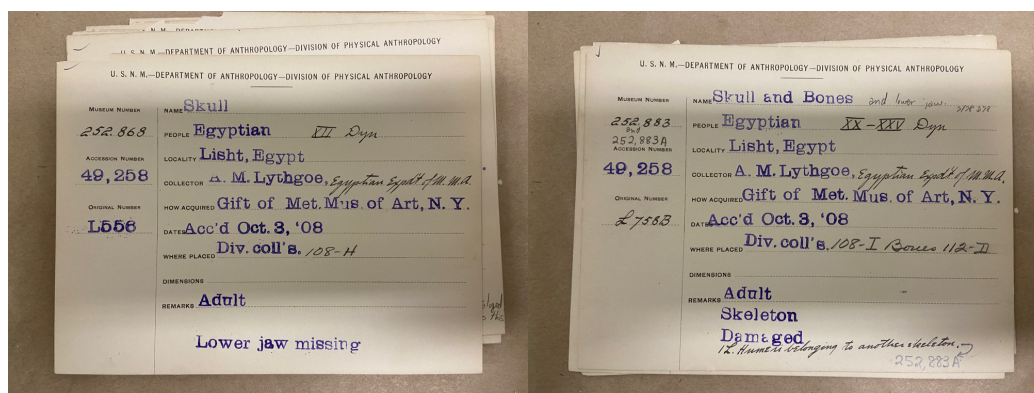 U. S. N. M.—DEPARTMENT OF ANTHROPOLOGY—DIVISION OF PHYSICAL ANTHROPOLOGY
U. S. N. M.—DEPARTMENT OF ANTHROPOLOGY—DIVISION OF PHYSICAL ANTHROPOLOGY
MUSEUM NUMBER
252.868
ACCESSION NUMBER
49,258
ORIGINAL NUMBER
L556
NAME Skull
PEOPLE Egyptian XII Dyn
LOCALITY Lisht, Egypt
COLLECTOR A. M. Lythgoe, Egyptian Expdt of M. M. A.
HOW ACQUIRED Gift of Met. Mus. of Art, N. Y.
DATES Acc'd Oct. 3, '08
Div. coll's. 108-H
WHERE PLACED
DIMENSIONS
REMARKS Adult
Lower jaw missing
U. S. N. M.—DEPARTMENT OF ANTHROPOLOGY—DIVISION OF PHYSICAL ANTHROPOLOGY
MUSEUM NUMBER
252.883
and
252,883A
ACCESSION NUMBER
49,258
ORIGINAL NUMBER
L 756B
NAME Skull and Bones and lower jaw
PEOPLE Egyptian XX-XXV Dyn
LOCALITY Lisht, Egypt
COLLECTOR A. M. Lythgoe, Egyptian Expdt of M. M. A.
HOW ACQUIRED Gift of Met. Mus. of Art, N. Y.
DATES Acc'd Oct. 3, '08
Div. coll's. 108-I Bones 112-D
WHERE PLACED
DIMENSIONS
REMARKS Adult
Skeleton
Damaged
1 L. Humerus belonging to another skeleton.
252,883A